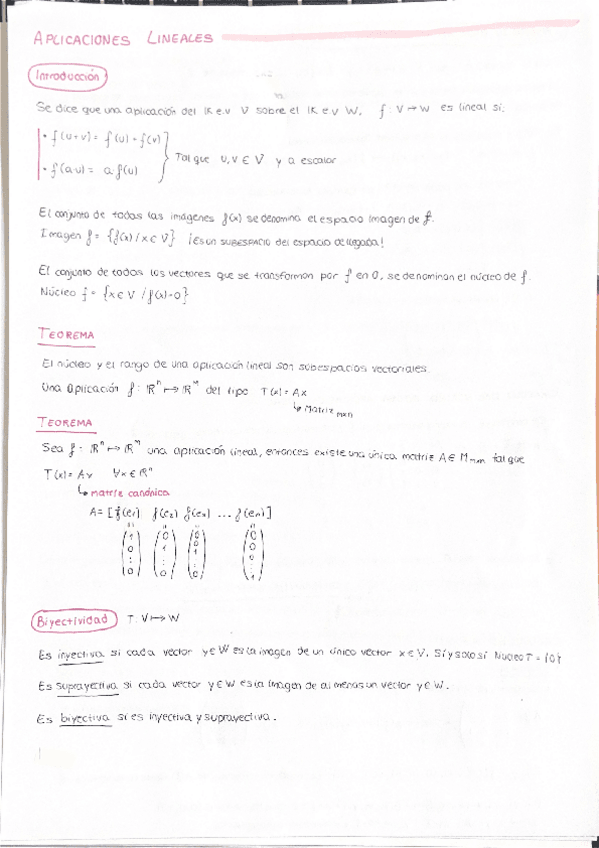 APLICACIONES LINEALES
Introducción
Se dice que una aplicación del IK e.v V sobre el IK e v W, f: V ↦ W es lineal si:
• f(u+v) = f(u) + f(v)
Tal que u,v ∈ V y a escalar
• f(a·u) = a f(u)
El conjunto de todas las imágenes f(x) se denomina el espacio imagen de f.
Imagen f = {f(x) / x ∈ V} ¡Es un SUBESPACIO del espacio de llegada!
El conjunto de todos los vectores que se transforman por f en 0, se denominan el núcleo de f.
Núcleo f = {x ∈ V / f(x)=0}
TEOREMA
El núcleo y el rango de una aplicación lineal son subespacios vectoriales.
Una Aplicación f: ℝⁿ ↦ ℝᵐ del tipo T(x) = Ax
↳ Matriz mxn
TEOREMA
Sea f: ℝⁿ ↦ ℝᵐ una aplicación lineal, entonces existe una única matriz A ∈ Mmxn tal que
T(x) = Av ∀x ∈ ℝⁿ
↳ matriz canónica
A = [f(e₁) f(e₂) f(e₃) ... f(eₙ)]
(1 0 : 0) (0 1 : 0) (0 0 1 : 0) (0 0 0 : 1)
Biyectividad T: V ↦ W
Es inyectiva si cada vector y ∈ W es la imagen de un único vector x ∈ V. Sí y solo sí Núcleo T = {0}
Es suprayectiva si cada vector y ∈ W es la imagen de al menos un vector y ∈ W.
Es biyectiva si es inyectiva y suprayectiva.